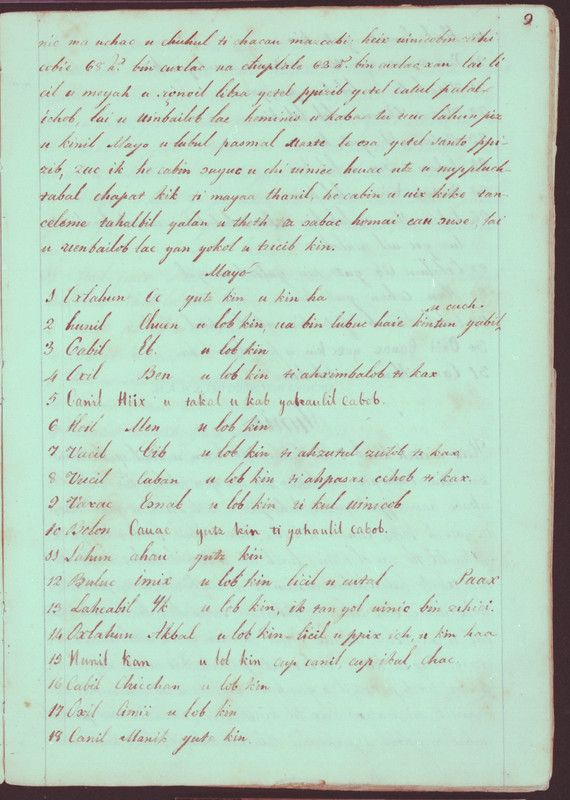 9
nic ma uchac u chuhul ti chacau mazcabi: heix uinicobin
cobie 65 a.s bin cuxlac na chuplalo 63 a.s bin cuxlac xan lai li
cil u meyah u renvil libra yetel ppizib yetel catul palal
ichob, lai u uinbailob lae heminis u kabaa tu uuc lahun piz
u kinil Mayo u lubul pasmal marte lo cra yetel santo ppi
zib, zuc ik he cabin zuyuc u chi uinice henac utz u nappluch
tabal chapat kik ti mayaa thanil; he cabin u uix kike tan
celeme tahalbil yalan u theth a sabac hemai cau suse, lai
u uenbailob lac yan yokol u tzicib kin.
Mayo
1 Oxlahun Oc yutz kin u kin ha
2 hunil Chuen u lob kin, ua bin lubuc haie kintun yabil, u cuch.
3 Cabil Eb. u lob kin
4 Oxil Ben u lob kin ti ahximbalob ti kax
5 Canil Hiix u takal u kab yahaulil cabob.
6 Hoil Men u lob kin
7 Uacil Cib u lob kin ti ahzutul zutob ti kax
8 Uucil Caban u lob kin ti ahpasax cehob ti kax.
9 Uaxac Esnab u lob kin ti kul uinicob
10 Bolon Cauac yutz kin ti yahaulil cabob.
11 Lahun ahau yutz kin
12 Buluc Imix u lob kin licil u cutal Paax
13 Lahcabil Yk u lob kin, ik tan yol uinic bin zihici.
14 Oxlahun Akbal u lob kin - licil u ppix ich, u kin haa
15 Hunil Kan u lob kin cup canil, cup ikal, chac
16 Cabil Chicchan u lob kin
17 Oxil Cimii u lob kin
18 Canil Manik yutz kin.